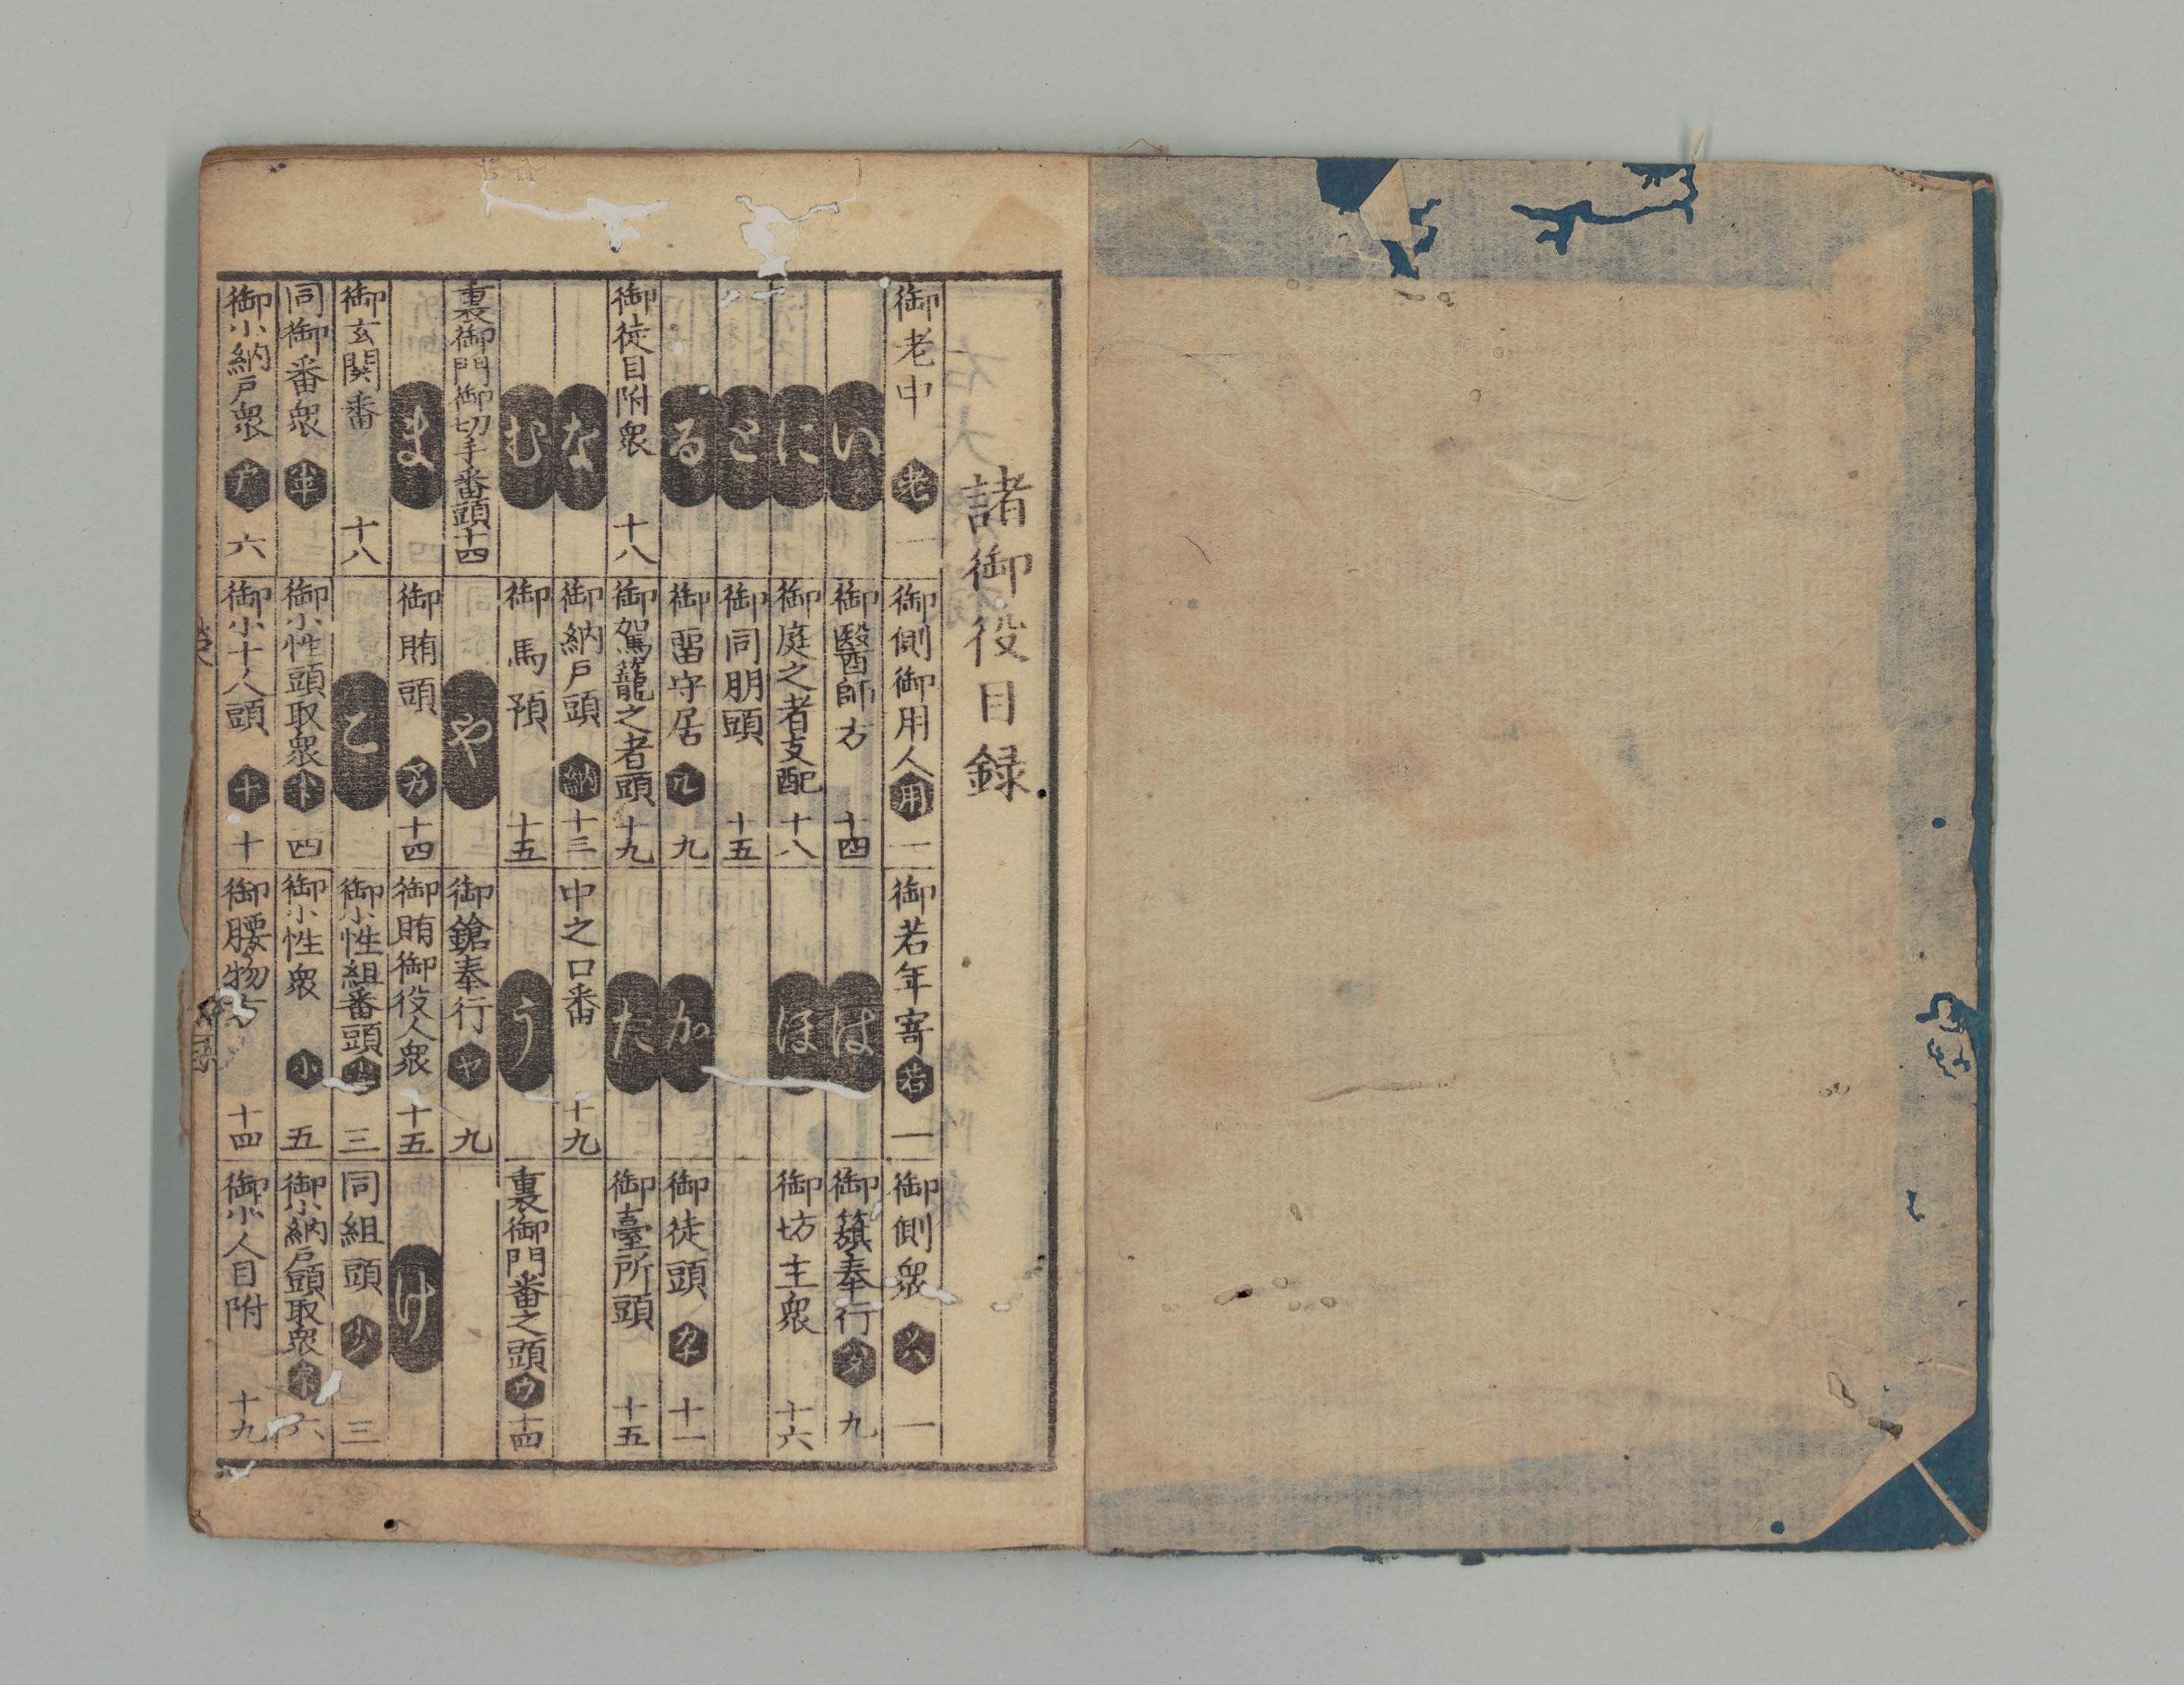 諸御役目録
御老中 老 一 御側御用人 用 一 御若年寄 若 一 御側衆 ソハ 一
い 御醫師方 十四 は 御籏奉行 ハタ 九
に 御庭之者支配 十八 ほ 御坊主衆 十六
と 御同朋頭 十五
る 御畄守居 ル 九 か 御徒頭 カチ 十一
御徒目附衆 十八 御駕籠之者頭 十九 た 御臺所頭 十五
な 御納戸頭 納 十三 中之口番 十九
む 御馬預 十五 う 裏御門番之頭 ウ 十四
裏御門御切手番頭 十四 や 御鎗奉行 ヤ 九
ま 御賄頭 十四 御賄御役人衆 十五 け
御玄関番 十八 こ 御小性組番頭 三 同組頭 三
同御番衆 御小性頭取衆 四 御小性衆 小 五 御小納戸頭取衆 六
御小納戸衆 六 御小十人頭 十 十 御腰物方 十四 御小人目附 十九